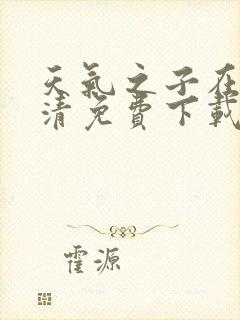 天氣之子在
清免費下載
霍源